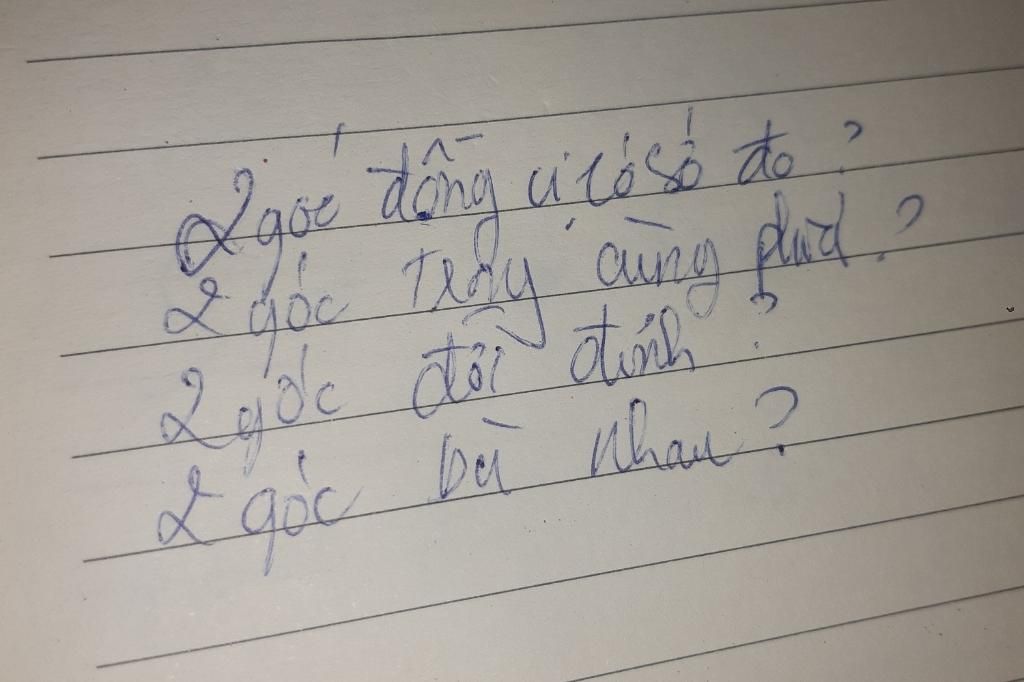 2 góc đồng vị có số đo ?
2 góc trong cùng phía ?
2 góc đối đỉnh ?
2 góc bù nhau ?